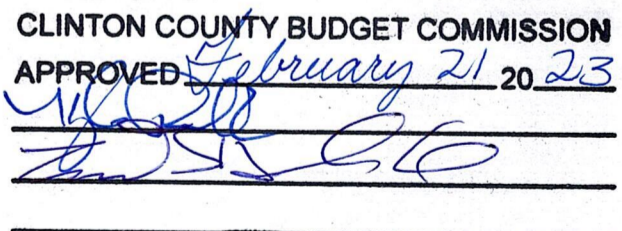 CLINTON COUNTY BUDGET COMMISSION
APPROVED February 21 20 23